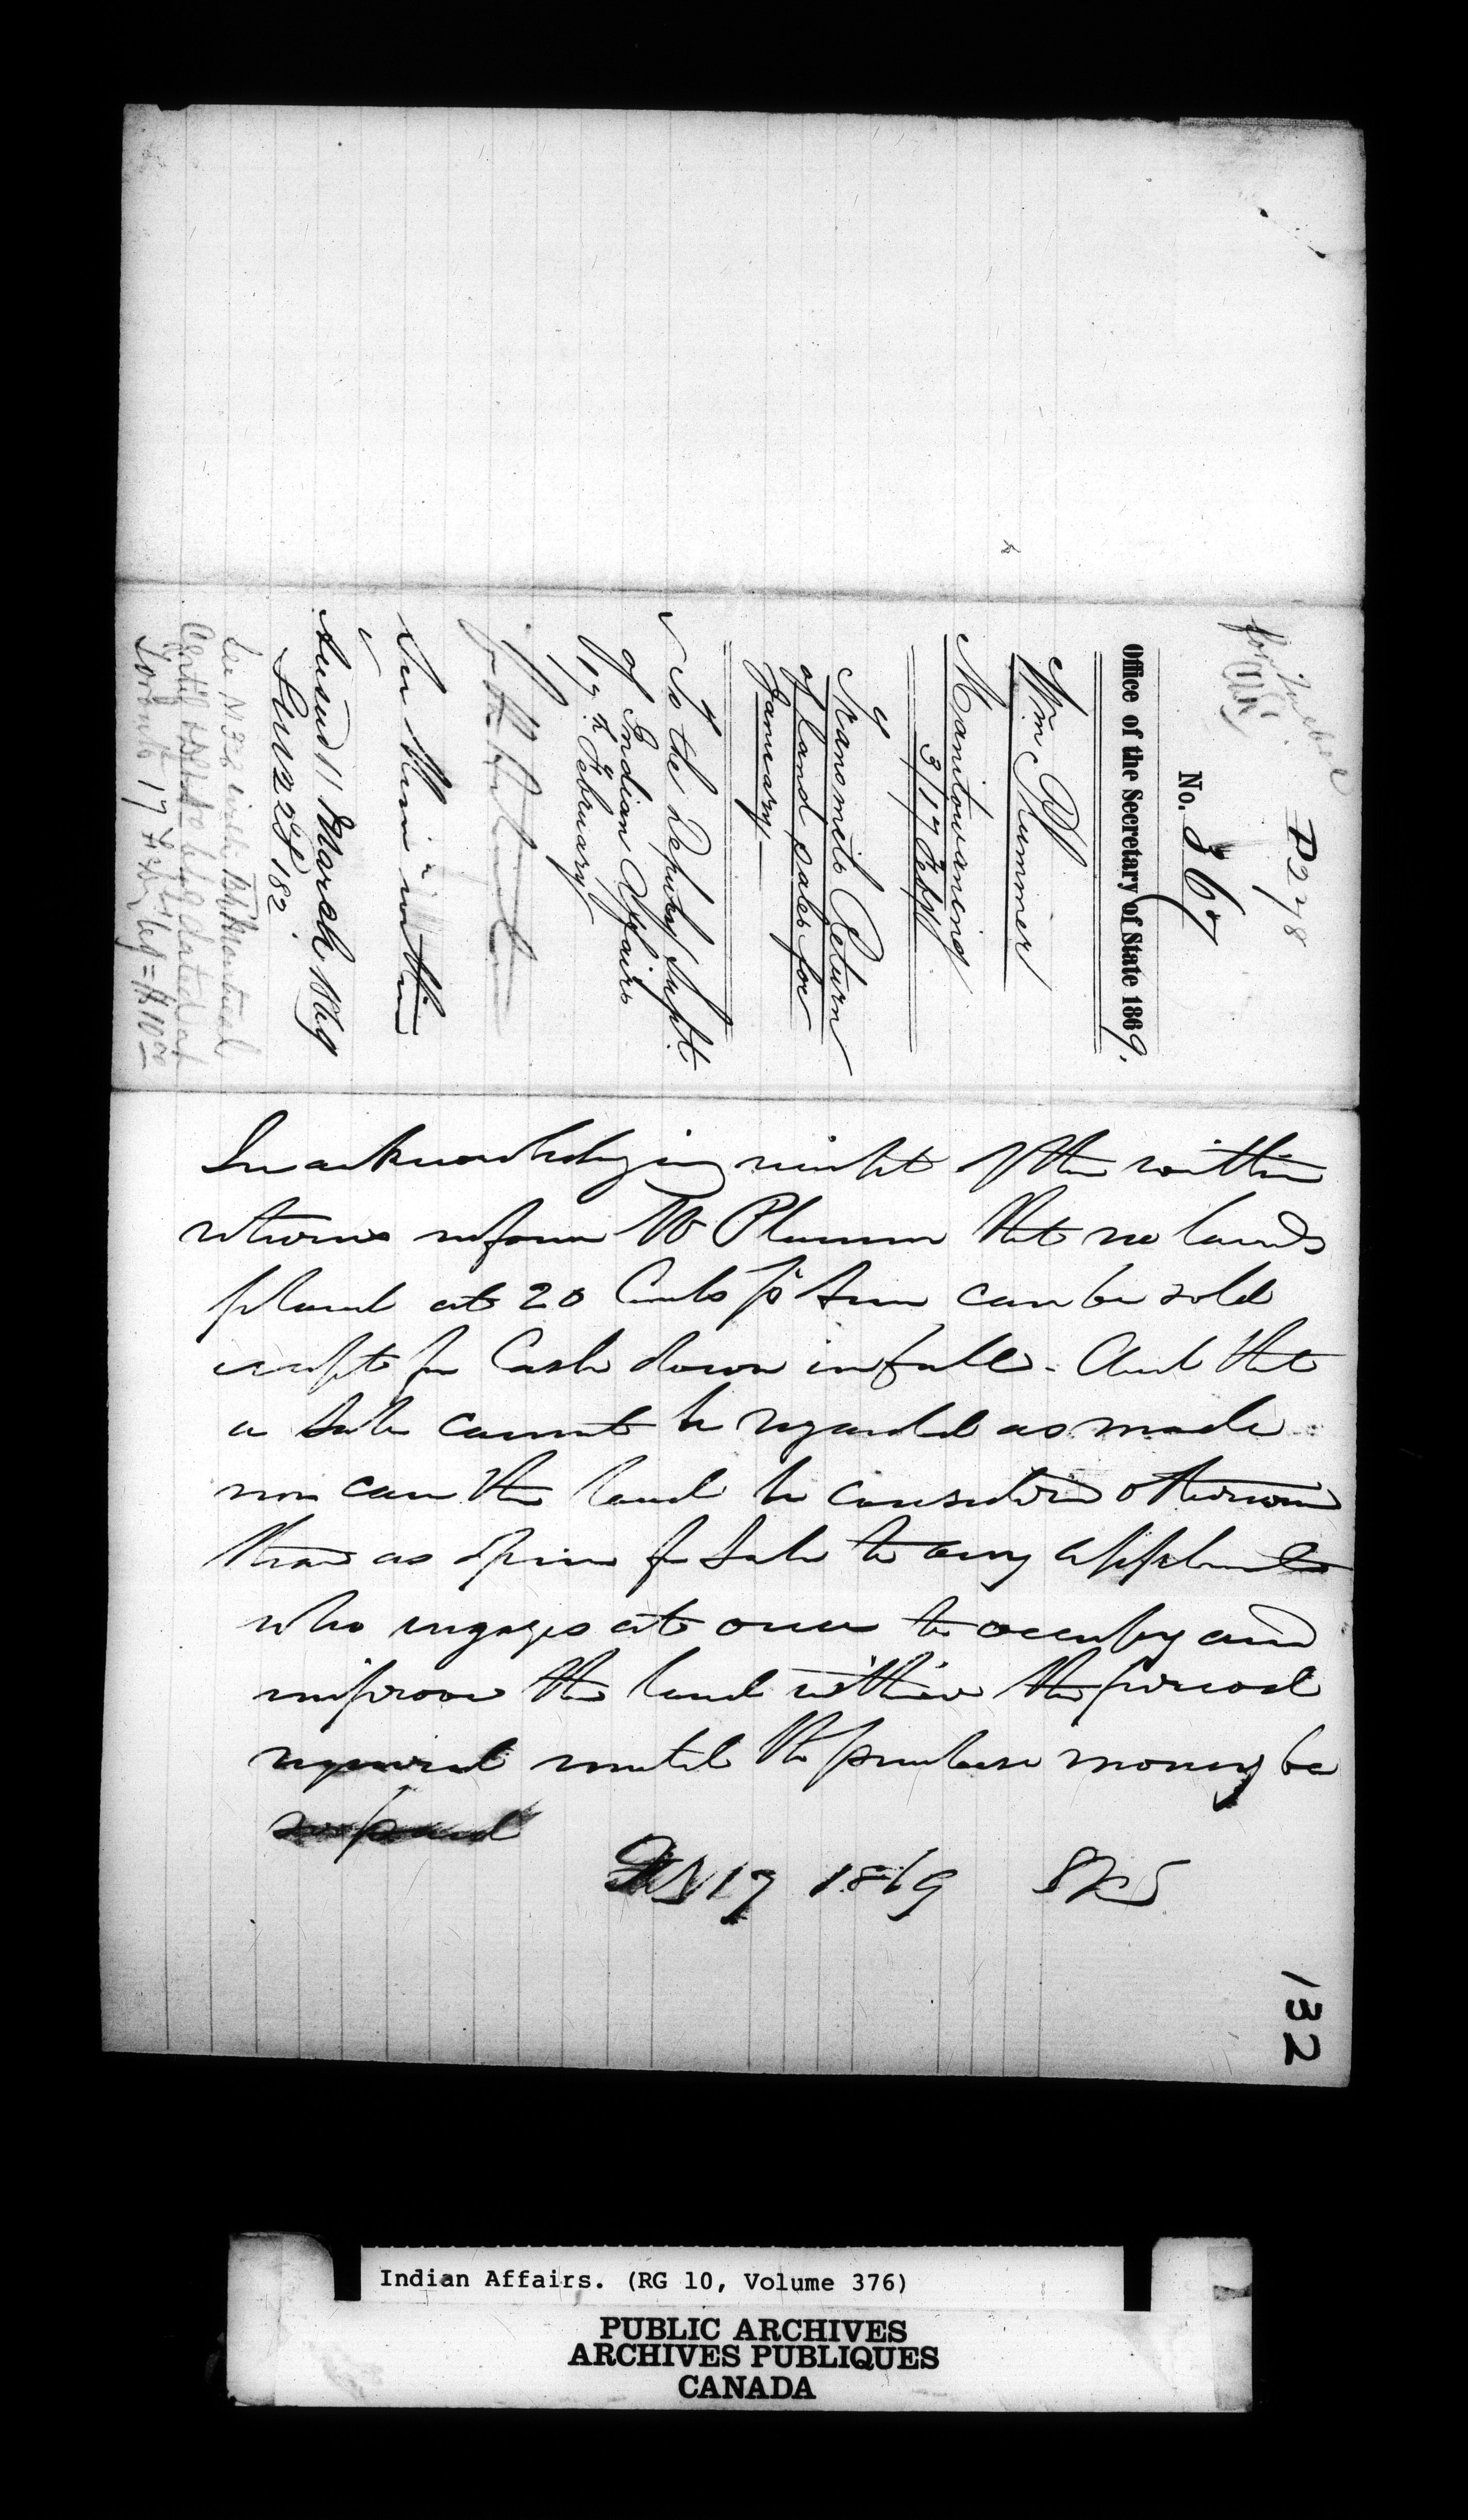 P 278
No. 367
Office of the Secretary of State 1869.
Wm Plummer
Manitowaning
3/17 Feby
Transmits Return
of land sales for
January
To the Deputy Supt
of Indian Affairs
17th February
See Memn within
Ansd 11 March 1869
Toronto 17 Feby 1869 = $10.00
In acknowledging receipt of the within
returns inform Mr Plummer that no lands
placed at 20 Cents pr Acre can be sold
except for Cash down in full. And that
a Sale cannot be regarded as made
nor can the land be considered otherwise
than as open for Sale to any applicant
who engages at once to occupy and
improve the land within the period
required until the purchase money be
so paid
Feb 17 1869
132
Indian Affairs. (RG 10, Volume 376)
PUBLIC ARCHIVES
ARCHIVES PUBLIQUES
CANADA